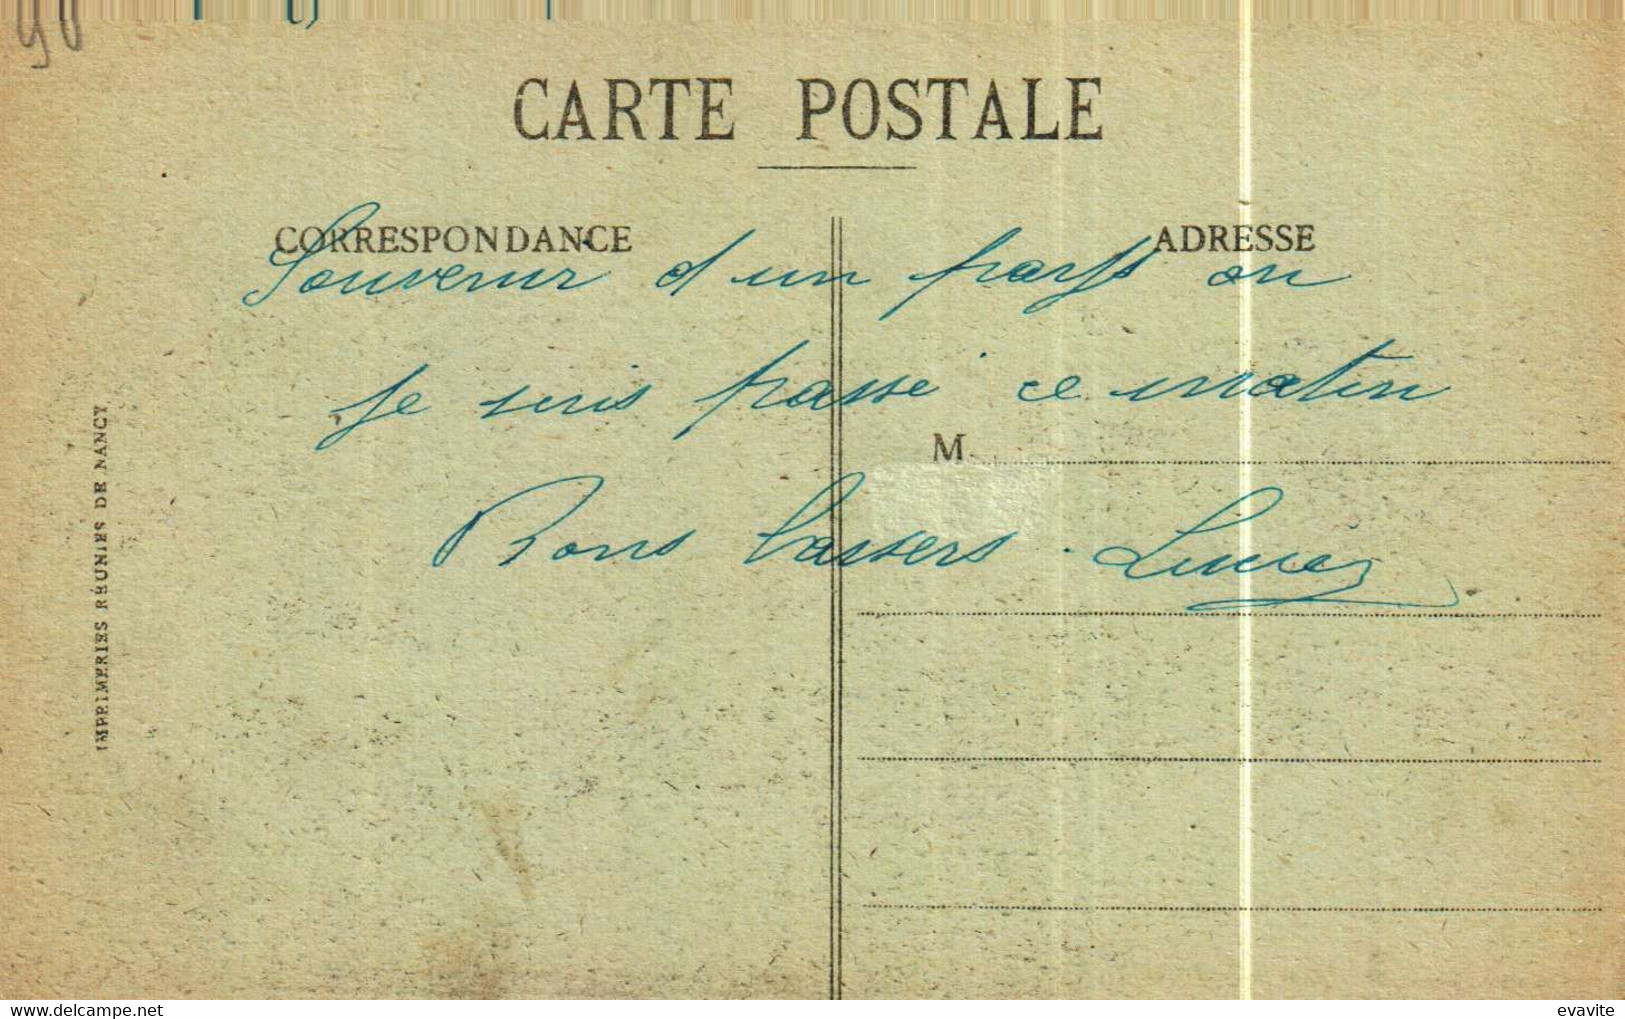 90
CARTE POSTALE
CORRESPONDANCE
ADRESSE
Souvenir d'un pays ou
je suis passé ce matin
M
Bons baisers. Lucien
IMPRIMERIES RÉUNIES DE NANCY
evavite